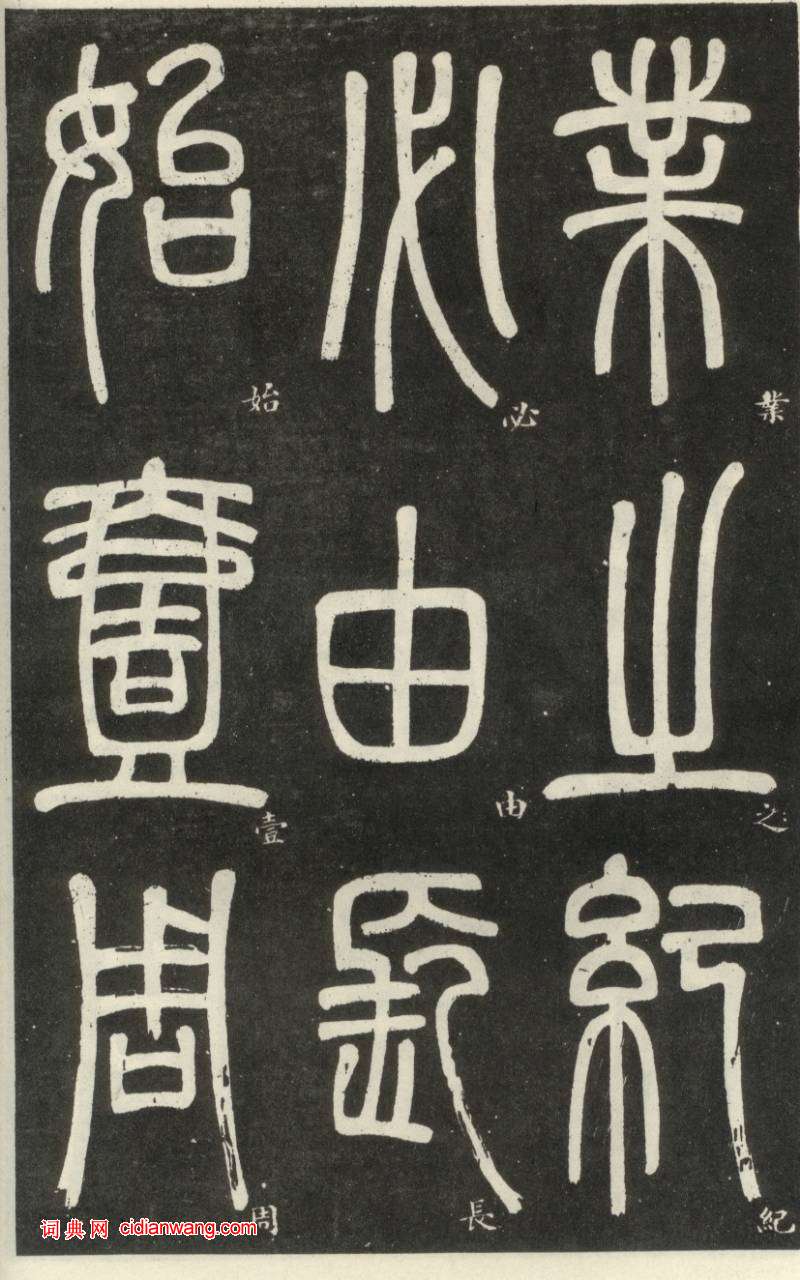 業之紀
必由長
始壹周
業
之
紀
必
由
長
始
壹
周
词典网 cidianwang.com